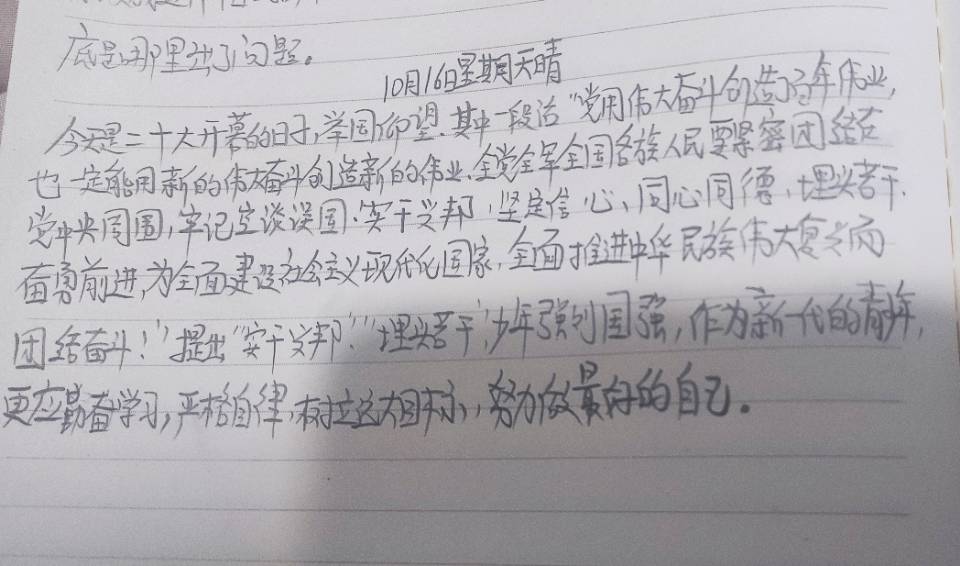 底是哪里出了问题。
10月16日星期天晴
今天是二十大开幕的日子,举国仰望.其中一段话“党用伟大奋斗创造了百年伟业,
也一定能用新的伟大奋斗创造新的伟业.全党全军全国各族人民要紧密团结在
党中央周围,牢记空谈误国.实干兴邦,坚定信心、同心同德,埋头苦干.
奋勇前进,为全面建设社会主义现代化国家,全面推进中华民族伟大复兴而
团结奋斗!”提出“实干兴邦”“埋头苦干”,少年强则国强,作为新一代的青年,
更应勤奋学习,严格自律,树立远大目标,努力做最好的自己.